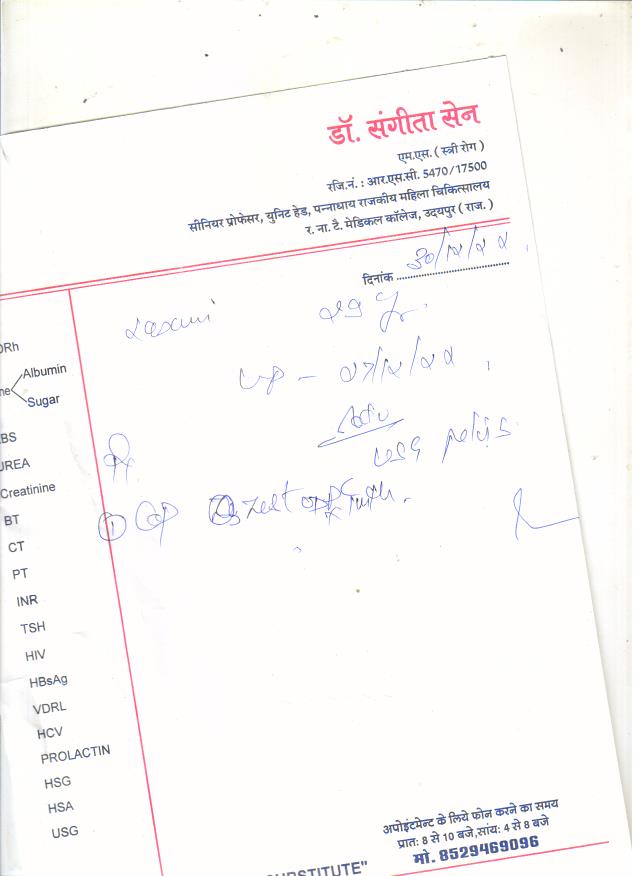 डॉ. संगीता सेन
एम.एस. ( स्त्री रोग )
रजि.नं. : आर.एस.सी. 5470/17500
सीनियर प्रोफेसर, युनिट हेड, पन्नाधाय राजकीय महिला चिकित्सालय
र. ना. टै. मेडिकल कॉलेज, उदयपुर ( राज. )
दिनांक
Laxmi
Adv
USG pelvis
ORh
Albumin
Sugar
BS
UREA
Creatinine
BT
CT
PT
INR
TSH
HIV
HBsAg
VDRL
HCV
PROLACTIN
HSG
HSA
USG
अपोइंटमेन्ट के लिये फोन करने का समय
प्रातः 8 से 10 बजे,सांयः 4 से 8 बजे
मो. 8529469096
SUBSTITUTE"